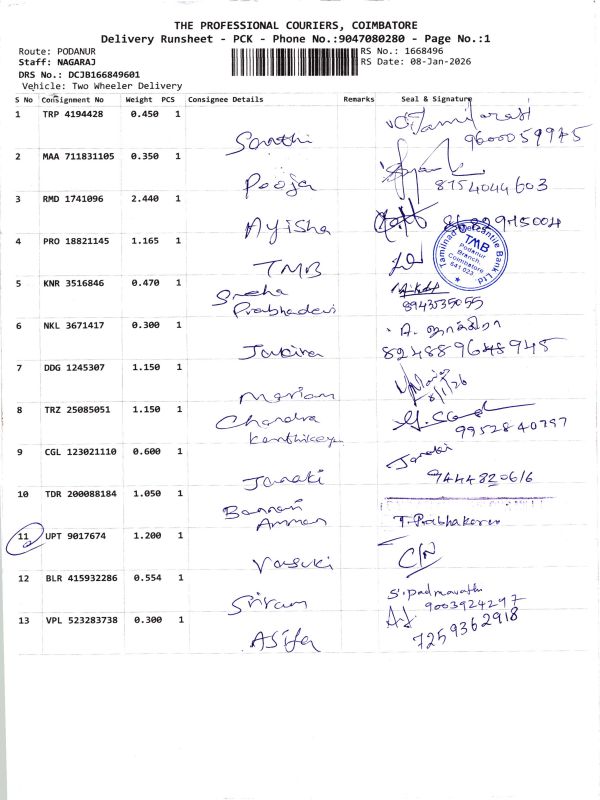 THE PROFESSIONAL COURIERS, COIMBATORE
Delivery Runsheet - PCK - Phone No.:9047080280 - Page No.:1
Route: PODANUR
RS No.: 1668496
Staff: NAGARAJ
RS Date: 08-Jan-2026
DRS No.: DCJB166849601
Vehicle: Two Wheeler Delivery
S No Consignment No Weight PCS Consignee Details Remarks Seal & Signature
1 TRP 4194428 0.450 1
Santhi 9600059945
2 MAA 711831105 0.350 1
Pooja 8754044603
3 RMD 1741096 2.440 1
Ayisha
4 PRO 18821145 1.165 1
TMB
Tamilnad Mercantile Bank Ltd
TMB
Podanur
Branch,
Coimbatore
641 023
5 KNR 3516846 0.470 1
Sneha
Prabhadevi 8943535055
6 NKL 3671417 0.300 1
Jakira
824889648945
7 DDG 1245307 1.150 1
Mariam 8/1/26
8 TRZ 25085051 1.150 1
Chandra
Karthikeyan 9952840797
9 CGL 123021110 0.600 1
Janaki
Janaki 9444820616
10 TDR 200088184 1.050 1
Bannari
Amman T. Prabhakaran
11 UPT 9017674 1.200 1
Vasuki C/N
12 BLR 415932286 0.554 1
Sriram S. Padmavathi
9003924297
13 VPL 523283738 0.300 1
Asifa 7259362918